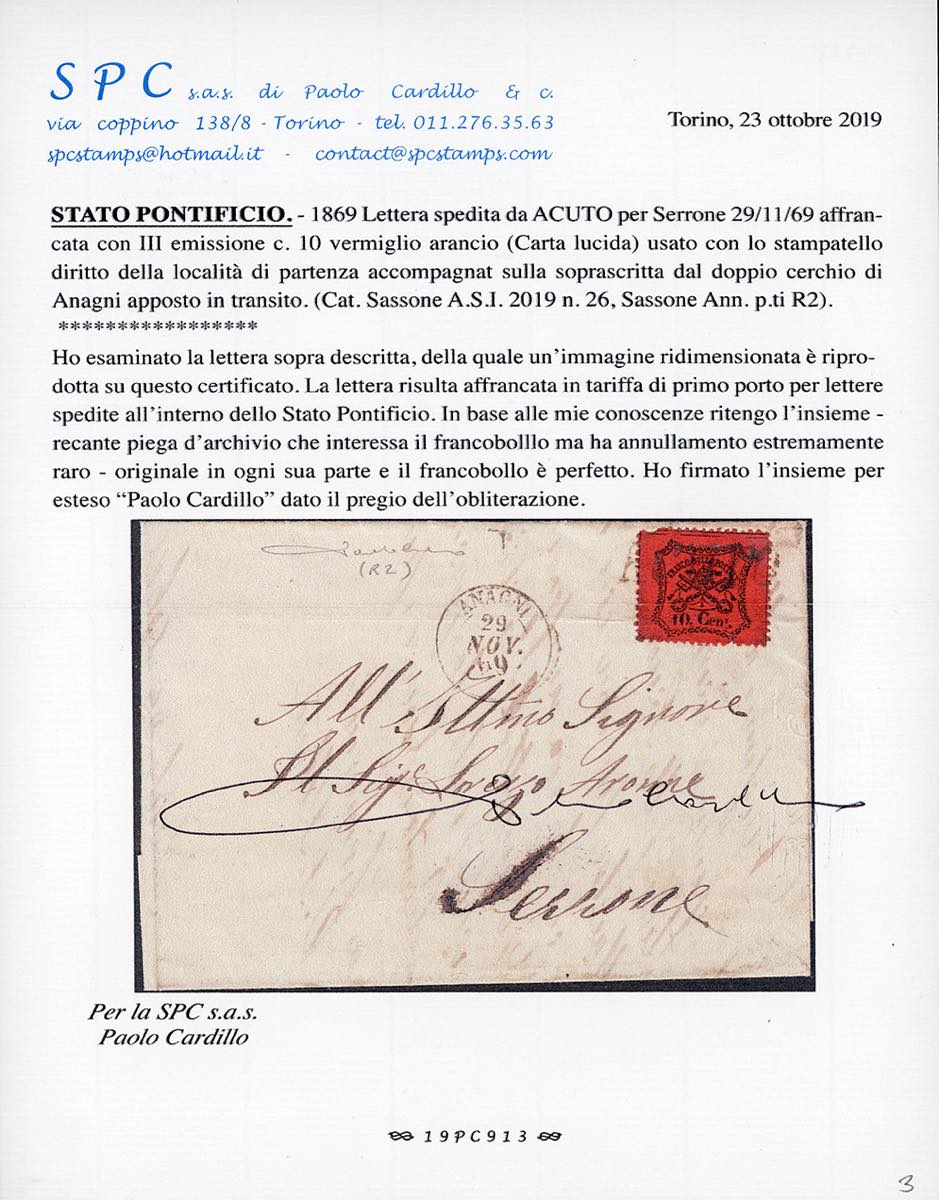 SPC s.a.s. di Paolo Cardillo & c.
via coppino 138/8 - Torino - tel. 011.276.35.63
spcstamps@hotmail.it - contact@spcstamps.com
Torino, 23 ottobre 2019
STATO PONTIFICIO. - 1869 Lettera spedita da ACUTO per Serrone 29/11/69 affran-
cata con III emissione c. 10 vermiglio arancio (Carta lucida) usato con lo stampatello
diritto della località di partenza accompagnat sulla soprascritta dal doppio cerchio di
Anagni apposto in transito. (Cat. Sassone A.S.I. 2019 n. 26, Sassone Ann. p.ti R2).
*****************
Ho esaminato la lettera sopra descritta, della quale un'immagine ridimensionata è ripro-
dotta su questo certificato. La lettera risulta affrancata in tariffa di primo porto per lettere
spedite all'interno dello Stato Pontificio. In base alle mie conoscenze ritengo l'insieme -
recante piega d'archivio che interessa il francobolllo ma ha annullamento estremamente
raro - originale in ogni sua parte e il francobollo è perfetto. Ho firmato l'insieme per
esteso “Paolo Cardillo” dato il pregio dell'obliterazione.
(R2)
FRANCO BOLLO POSTALE
10. Cent.
ANAGNI
29
NOV.
69
All' Illmo Signore
Il Sig.
Serrone
Per la SPC s.a.s.
Paolo Cardillo
19PC913
3